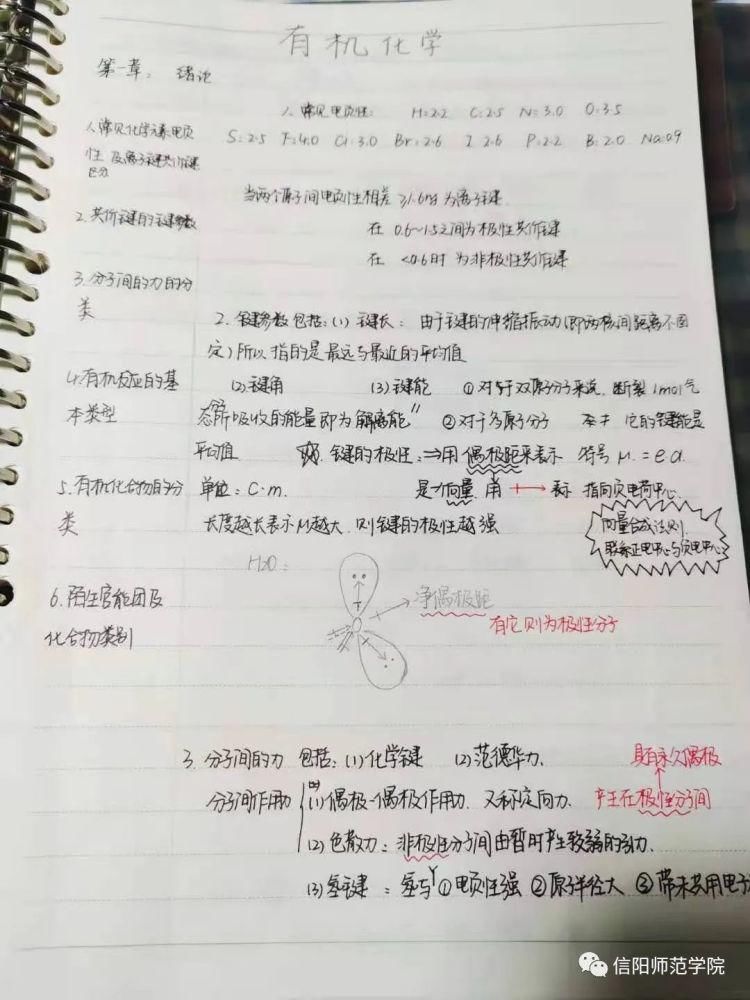 有机化学
第一章: 绪论
1.常见电负性: H=2.2 C=2.5 N=3.0 O=3.5
1.常见化学元素电负
S=2.5 F=4.0 Cl=3.0 Br=2.6 I 2.6 P=2.2 B=2.0 Na=0.9
性及离子键共价键
区分
当两个原子间电负性相差≥1.6时为离子键
2.共价键的键参数
在 0.6~1.5之间为极性共价键
在 <0.6时 为非极性共价键
3.分子间的力的分
类
2.键参数包括:(1)键长: 由于键的伸缩振动(即两核间距离不固
定)所以指的是最远与最近的平均值
4.有机反应的基
(2)键角 (3)键能 ①对于双原子分子来说,断裂1mol气
本类型
态分所吸收的能量即为解离能" ②对于多原子分子 它的键能是
平均值 键的极性:⇒用偶极距来表示 符号μ.=ed.
5.有机化合物的分
单位:C·m. 是个向量 用 +→ 表示 指向负电荷中心.
类
长度越长表示μ越大.则键的极性越强
向量合成法则.
联系正电中心与负电中心
H2O:
6.陌生官能团及
净偶极距
化合物类别
有它则为极性分子
3.分子间的力 包括:(1)化学键 (2)范德华力.
具有永久偶极
分子间作用力 (1)偶极-偶极作用力.又称定向力.
产生在极性分子间
(2)色散力:非极性分子间由暂时产生较弱的引力.
(3)氢键:氢与Y①电负性强 ②原子半径大 ③带未共用电子
信阳师范学院